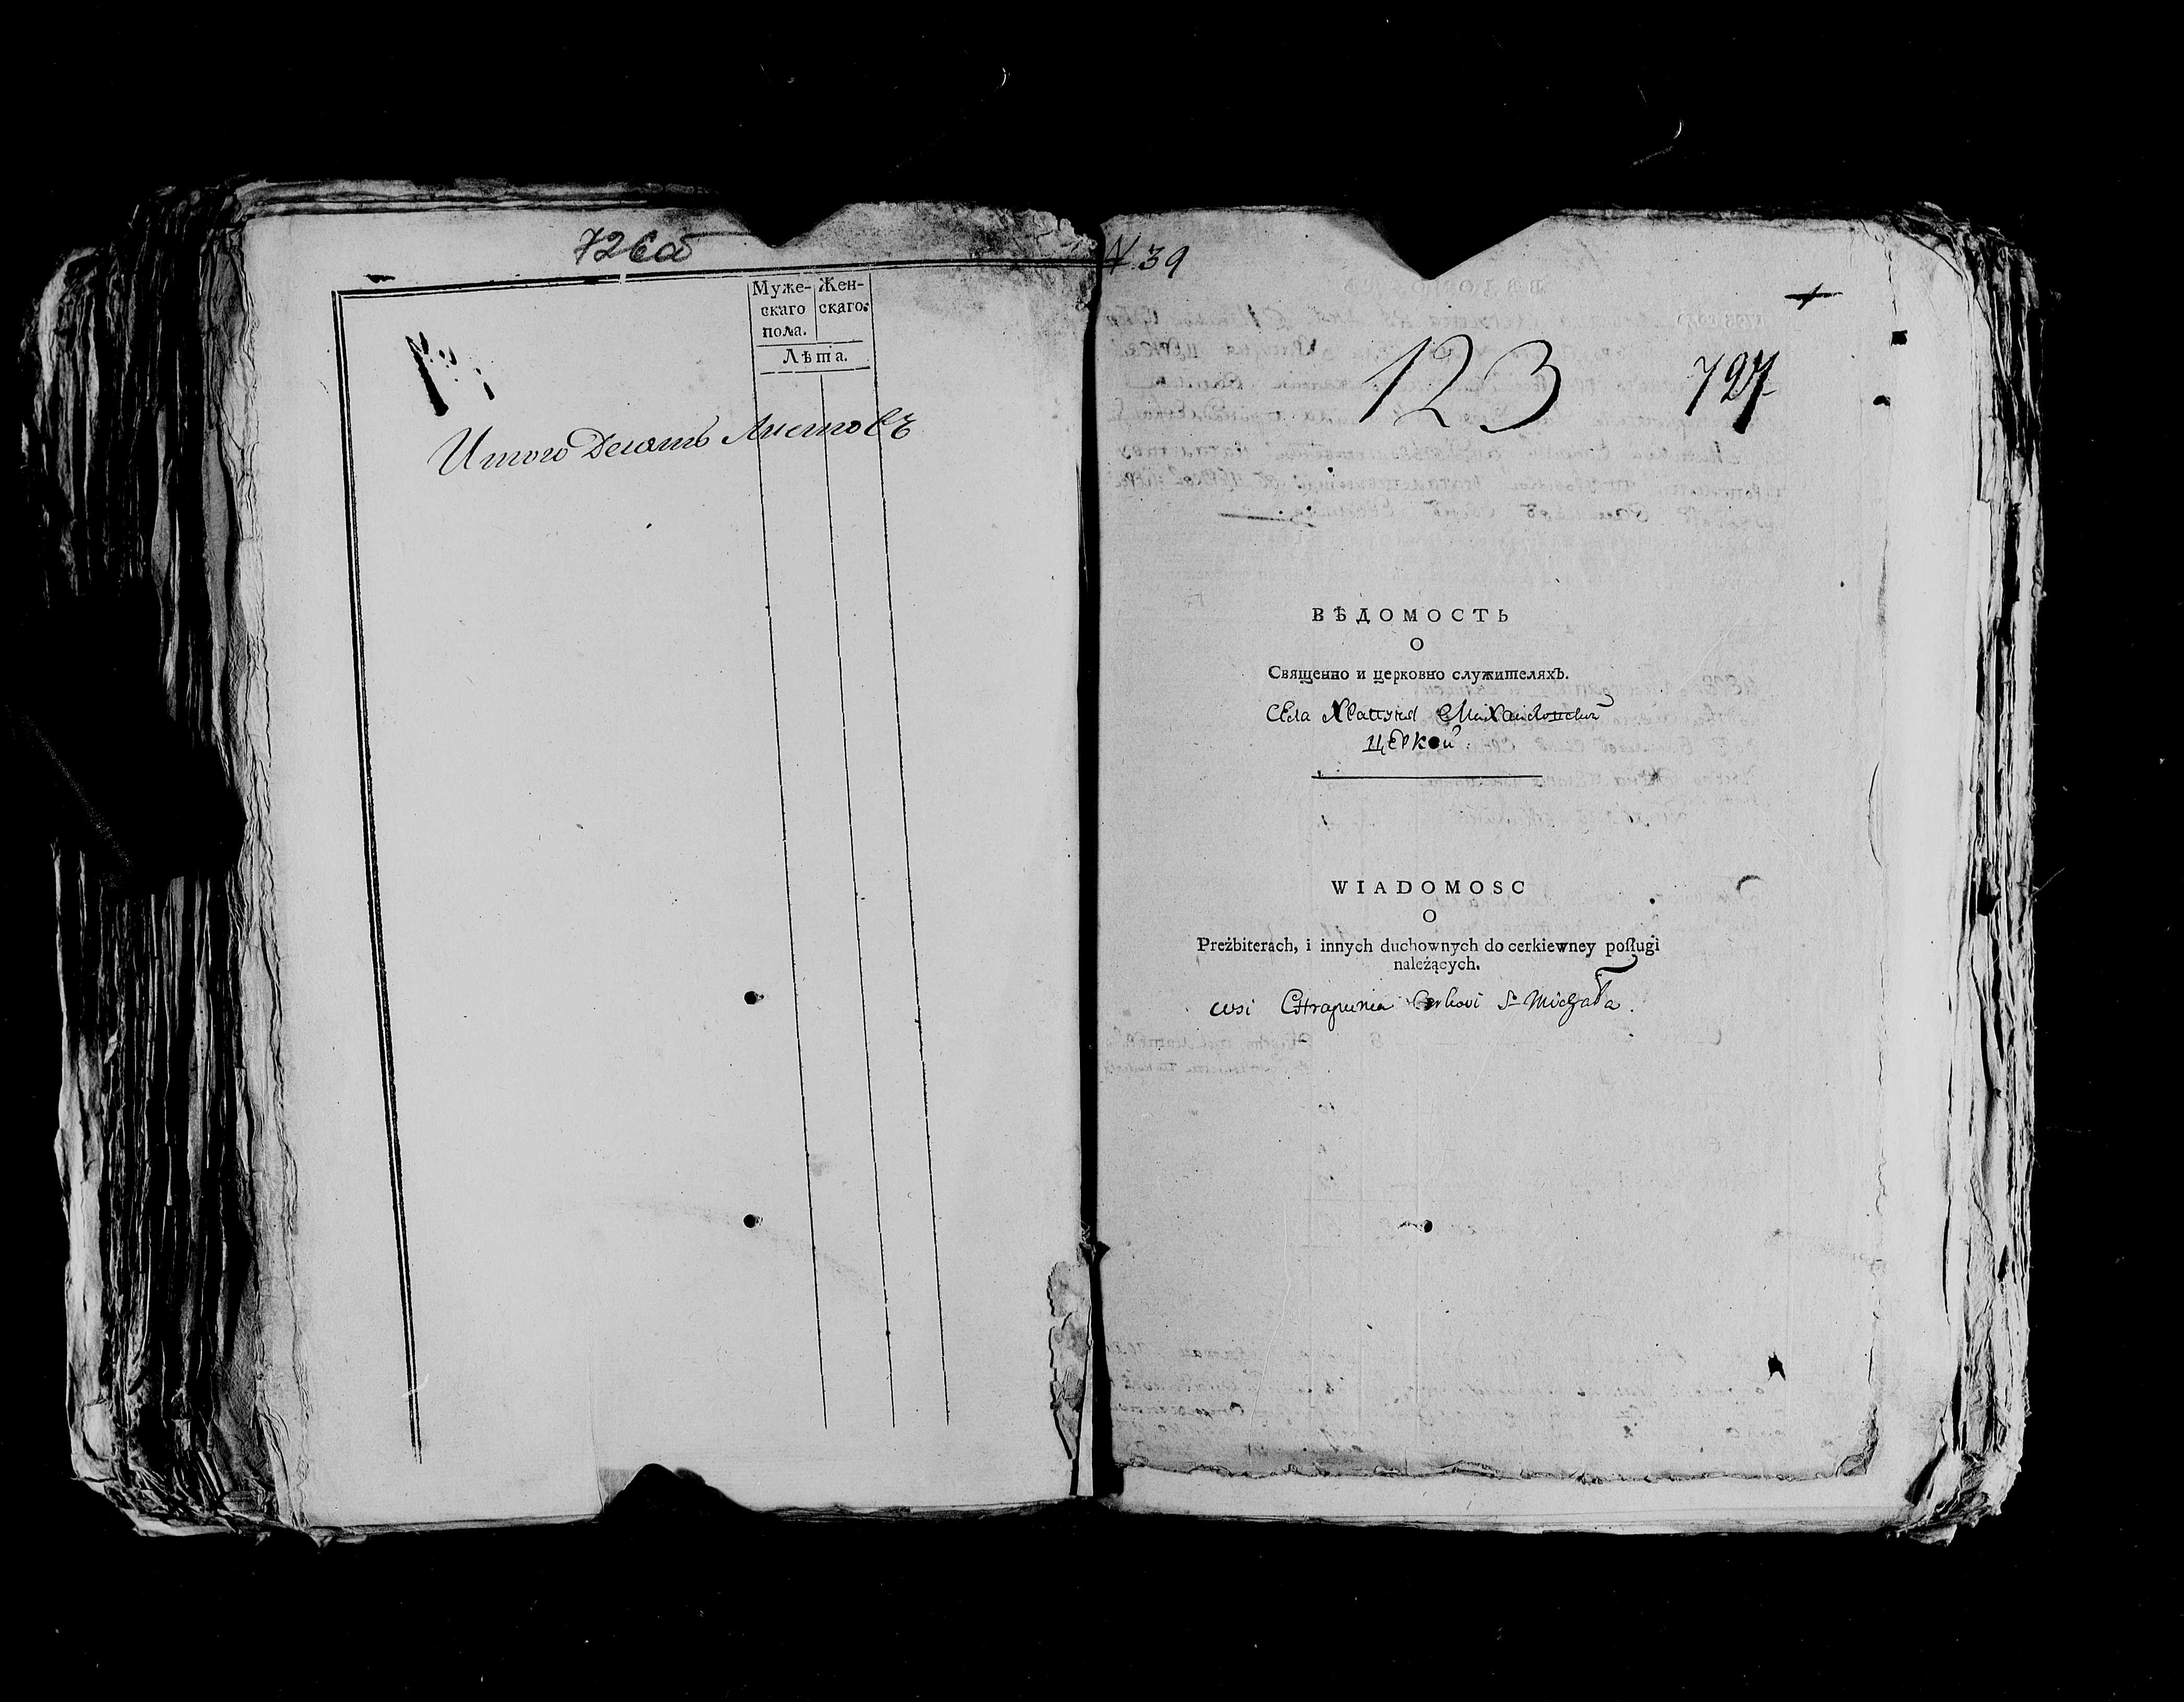 726об
Муже-
скаго
пола.
Жен-
скаго.
Лѣта.
Итого Десять Листовъ
N. 39
123
727
ВѢДОМОСТЬ
О
Священно и церковно служителяхъ.
Села Храпуня Михайловской
церкви.
WIADOMOSC
O
Preżbiterach, i innych duchownych do cerkiewney poſługi
należących.
wsi Chrapunia Cerkwi S. Michała.